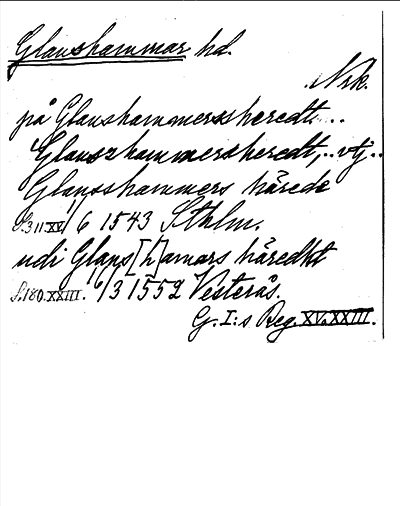 Glanshammar hd.
Nrk.
på Glanshammersheredt...
Glanszhammersheredt,.. vtj..
Glansshammers härede
S.311.XV. 1/6 1543 Sthlm.
udi Glans[h]amars häredht
S.180.XXIII. 16/3 1552 Vesterås.
G.I:s Reg. XV. XXIII.